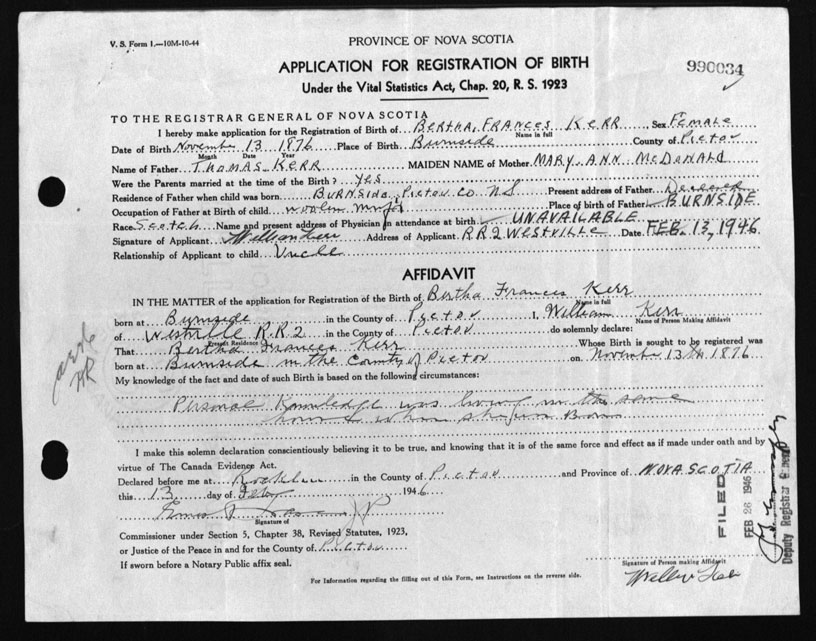 V. S. Form 1.—10M-10-44
PROVINCE OF NOVA SCOTIA
APPLICATION FOR REGISTRATION OF BIRTH
Under the Vital Statistics Act, Chap. 20, R. S. 1923
990034
TO THE REGISTRAR GENERAL OF NOVA SCOTIA
I hereby make application for the Registration of Birth of BERTHA, FRANCES KERR Sex Female
Name in full
Date of Birth November 13 1876 Place of Birth Burnside County of Pictou
Month Date Year
Name of Father THOMAS KERR MAIDEN NAME of Mother MARY ANN McDONALD
Were the Parents married at the time of the Birth? Yes
Residence of Father when child was born BURNSIDE, PICTOU CO NS Present address of Father
Occupation of Father at Birth of child woolen Place of birth of Father BURNSIDE
Race Scotch Name and present address of Physician in attendance at birth UNAVAILABLE
Signature of Applicant William Kerr Address of Applicant RR2 WESTVILLE Date FEB. 13, 1946
Relationship of Applicant to child Uncle
AFFIDAVIT
IN THE MATTER of the application for Registration of the Birth of Bertha Frances Kerr
Name in full
born at Burnside in the County of Pictou I, William Kerr
Name of Person Making Affidavit
of Westville R.R.2 in the County of Pictou do solemnly declare:
Present Residence
That Bertha Frances Kerr Whose Birth is sought to be registered was
born at Burnside in the County of Pictou on November 13th 1876
My knowledge of the fact and date of such Birth is based on the following circumstances:
Personal Knowledge was living in the same
when Born
I make this solemn declaration conscientiously believing it to be true, and knowing that it is of the same force and effect as if made under oath and by
virtue of The Canada Evidence Act.
Declared before me at Rocklin in the County of Pictou and Province of NOVA SCOTIA
this 13 day of Feby 1946
Signature of
Commissioner under Section 5, Chapter 38, Revised Statutes, 1923,
or Justice of the Peace in and for the County of Pictou
If sworn before a Notary Public affix seal.
Signature of Person making Affidavit
William Kerr
For Information regarding the filling out of this Form, see Instructions on the reverse side.
FILED
FEB 26 1946
Deputy Registrar General